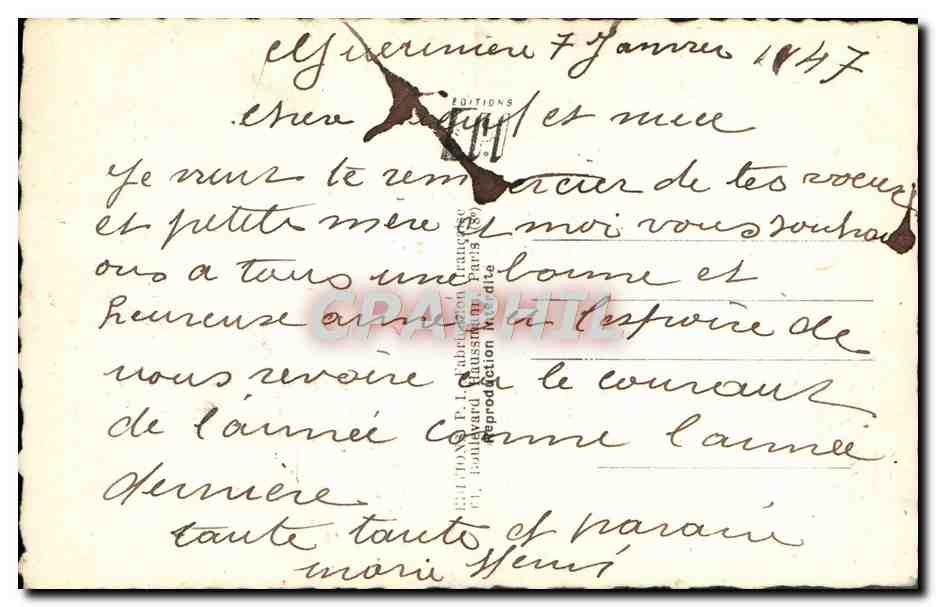 Guerinière 7 Janvier 1947
EDITIONS
P.I
cher et mere
Je vient te remercier de tes voeux
et petite mère et moi vous souhai
ons a tous une bonne et
heureuse anne a l'espoire de
nous revoire en le courant
de l'année comme l'année
dernière
tante tante et parain
marie Henri
EDITIONS P. I. Fabrication Française
Boulevard Haussmann Paris (8e)
Reproduction Interdite
CPAPHIL